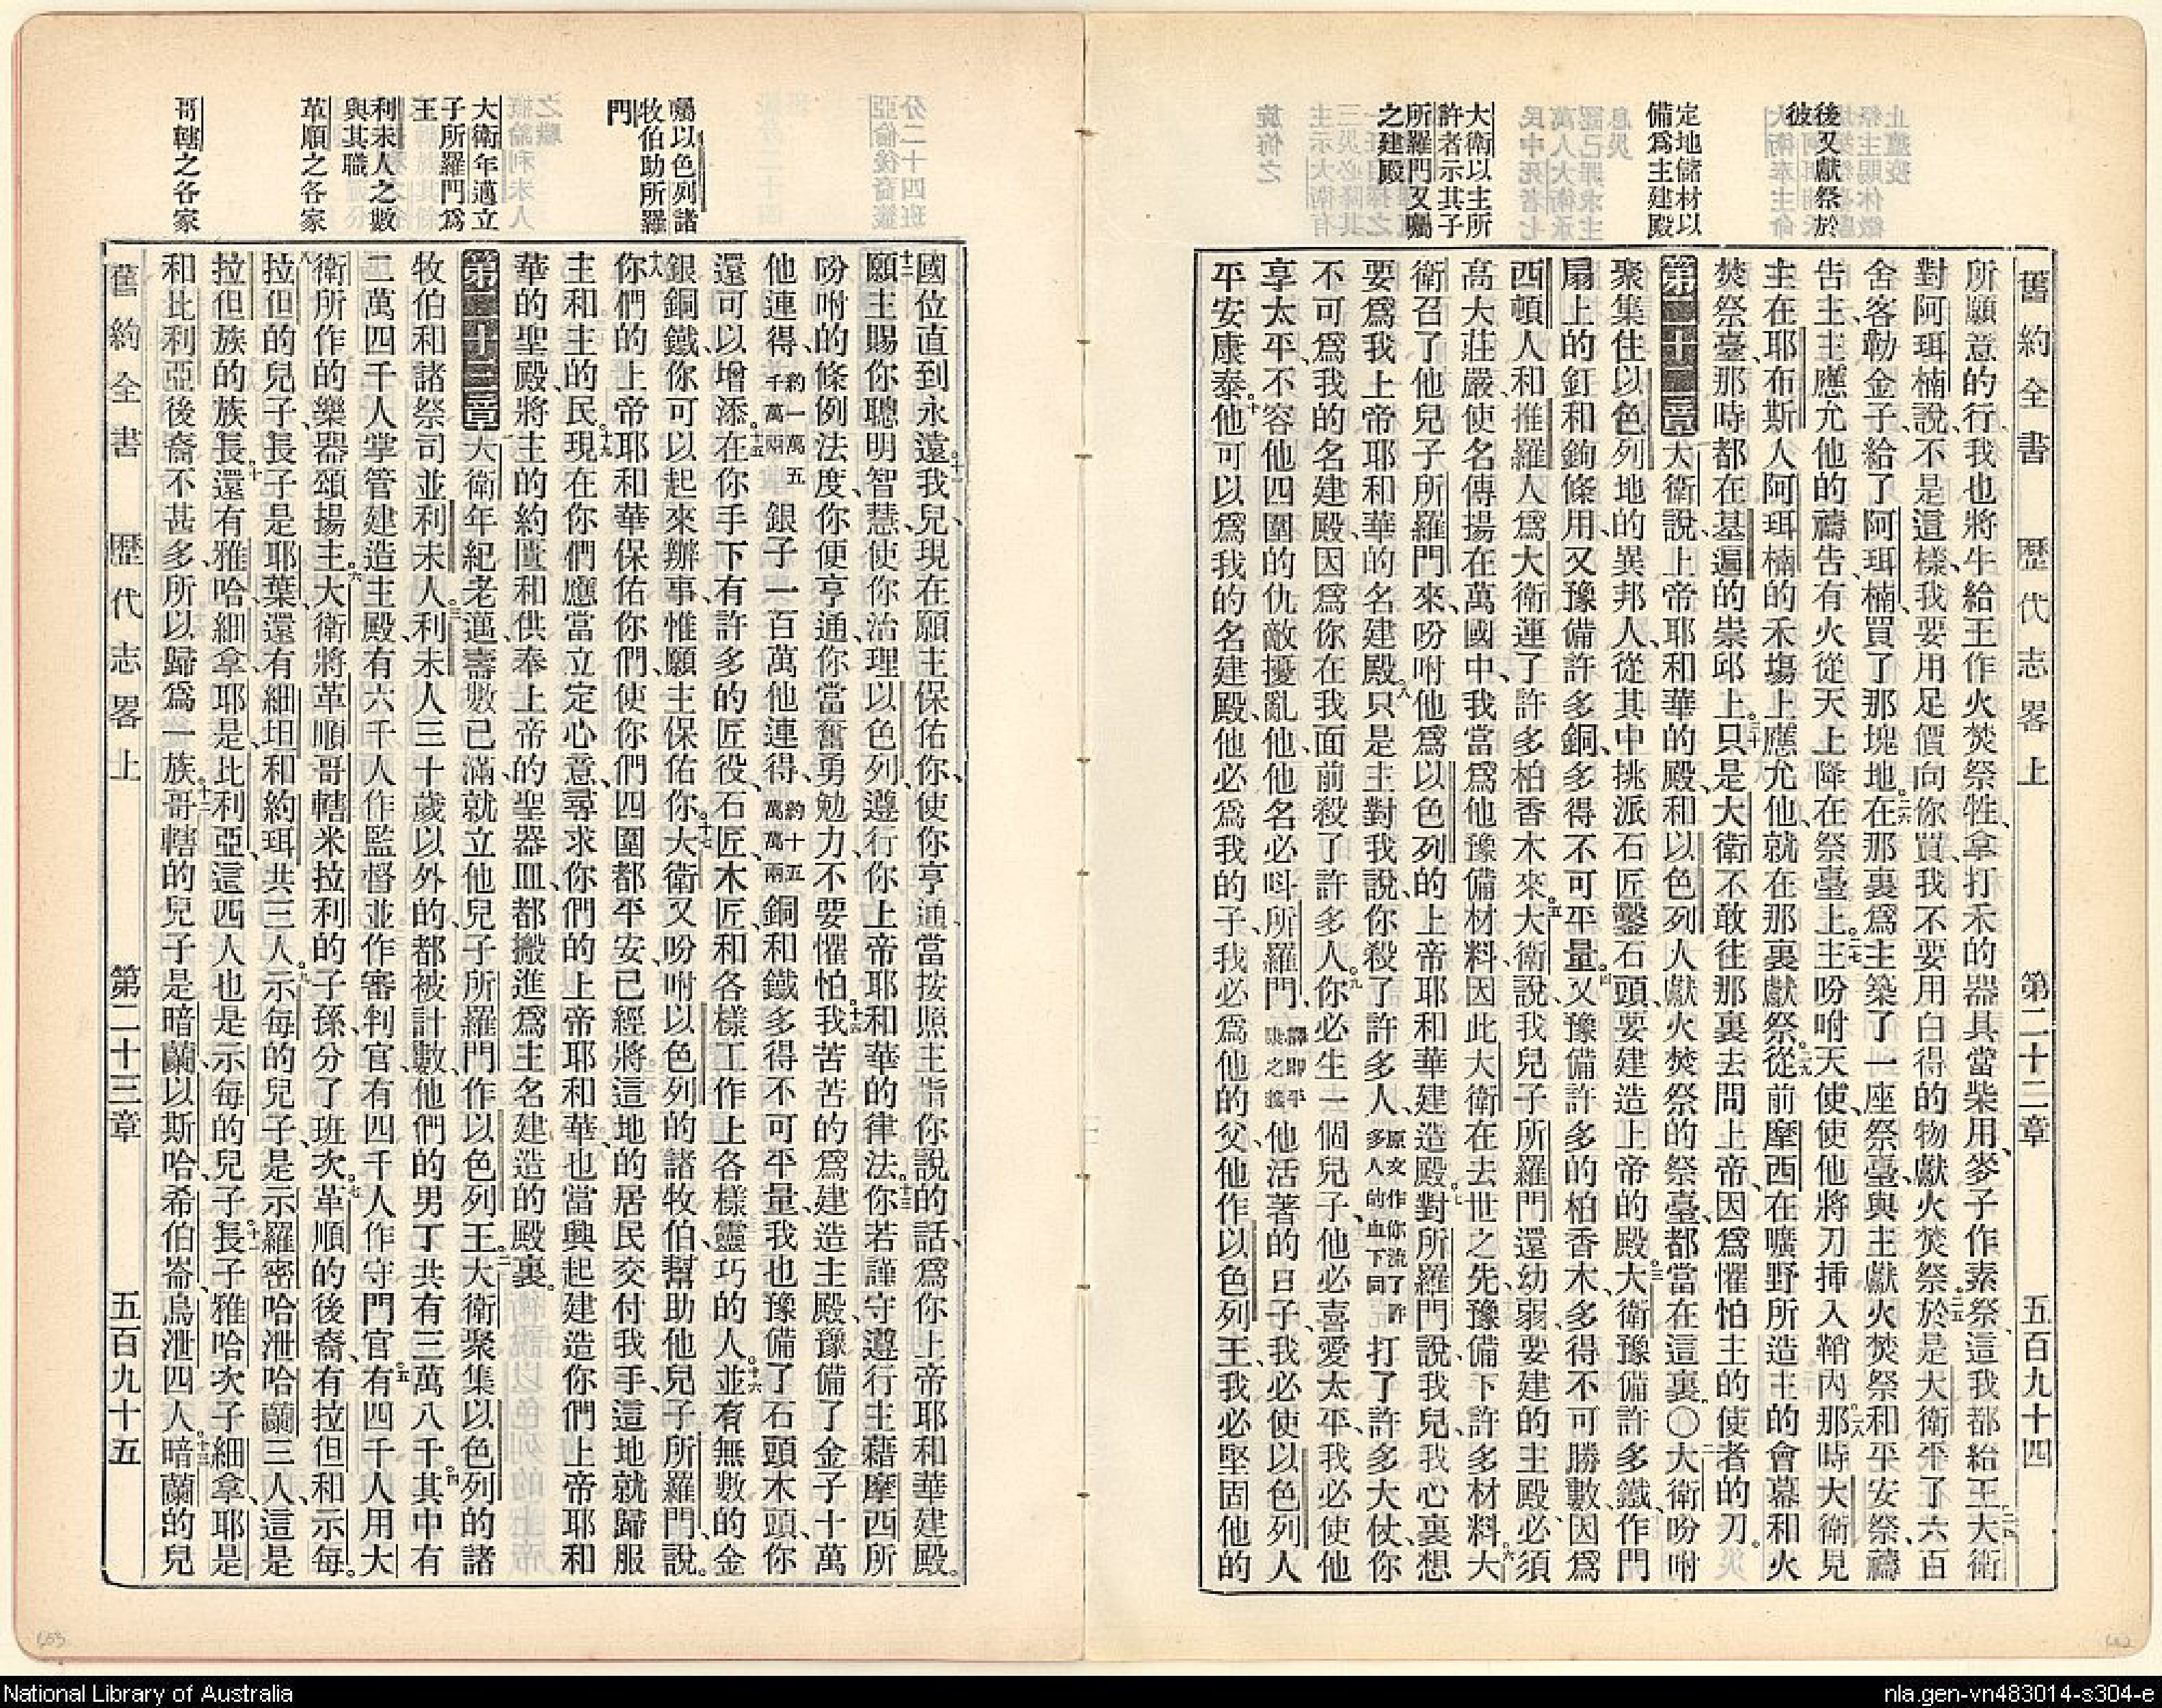 舊約全書 歷代志畧上 第二十二章 五百九十四
後又獻祭於
彼
定地儲材以
備爲主建殿
大衛以主所
許者示其子
所羅門又囑
之建殿
所願意的行、我也將牛給王作火焚祭牲、拿打禾的器具當柴用、麥子作素祭、這我都給王、二四大衛
對阿珥楠說、不是這樣、我要用足價向你買、我不要用白得的物獻火焚祭、二五於是大衛平了六百
舍客勒金子給了阿珥楠、買了那塊地、二六在那裏爲主築了一座祭臺、與主獻火焚祭和平安祭、禱
告主、主應允他的禱告、有火從天上降在祭臺上。二七主吩咐天使、使他將刀挿入鞘內。二八那時大衛見
主在耶布斯人阿珥楠的禾塲上應允他、就在那裏獻祭。二九從前摩西在曠野所造主的會幕和火
焚祭臺、那時都在基遍的崇邱上。三十只是大衛不敢往那裏去問上帝、因爲懼怕主的使者的刀。
第二十二章 大衛說、上帝耶和華的殿、和以色列人獻火焚祭的祭臺、都當在這裏。〇二大衛吩咐
聚集住以色列地的異邦人、從其中挑派石匠鑿石頭、要建造上帝的殿。三大衛豫備許多鐵、作門
扇上的釘和鉤條用、又豫備許多銅、多得不可平量。四又豫備許多的柏香木、多得不可勝數、因爲
西頓人和推羅人爲大衛運了許多柏香木來。五大衛說、我兒子所羅門還幼弱、要建的主殿、必須
高大莊嚴、使名傳揚在萬國中、我當爲他豫備材料、因此大衛在去世之先、豫備下許多材料。六大
衛召了他兒子所羅門來、吩咐他爲以色列的上帝耶和華建造殿。七對所羅門說、我兒、我心裏想
要爲我上帝耶和華的名建殿。八只是主對我說、你殺了許多人、原文作你流了許多人的血下同打了許多大仗、你
不可爲我的名建殿、因爲你在我面前殺了許多人。九你必生一個兒子、他必喜愛太平、我必使他
享太平、不容他四圍的仇敵擾亂他、他名必叫所羅門、譯即平康之義他活著的日子、我必使以色列人
平安康泰。十他可以爲我的名建殿、他必爲我的子、我必爲他的父、他作以色列王、我必堅固他的
囑以色列諸
牧伯助所羅
門
大衛年邁立
子所羅門爲
王
利未人之數
與其職
革順之各家
哥轄之各家
國位直到永遠。十一我兒、現在願主保佑你、使你亨通、當按照主指你說的話、爲你上帝耶和華建殿。
十二願主賜你聰明智慧、使你治理以色列、遵行你上帝耶和華的律法。十三你若謹守遵行主藉摩西所
吩咐的條例法度、你便亨通、你當奮勇勉力、不要懼怕。十四我苦苦的爲建造主殿、豫備了金子十萬
他連得、約一萬五千萬兩銀子一百萬他連得、約十五萬萬兩銅和鐵多得不可平量、我也豫備了石頭木頭、你
還可以增添。十五在你手下有許多的匠役、石匠、木匠、和各樣工作上各樣靈巧的人。十六並有無數的金
銀銅鐵、你可以起來辦事、惟願主保佑你。十七大衛又吩咐以色列的諸牧伯、幫助他兒子所羅門、說。
十八你們的上帝耶和華保佑你們、使你們四圍都平安、已經將這地的居民交付我手、這地就歸服
主和主的民。十九現在你們應當立定心意、尋求你們的上帝耶和華、也當興起建造你們上帝耶和
華的聖殿、將主的約匱和供奉上帝的聖器皿、都搬進爲主名建造的殿裏。
第二十三章 大衛年紀老邁、壽數已滿、就立他兒子所羅門作以色列王。二大衛聚集以色列的諸
牧伯和諸祭司並利未人。三利未人三十歲以外的、都被計數、他們的男丁共有三萬八千。四其中有
二萬四千人掌管建造主殿、有六千人作監督並作審判官、有四千人作守門官。五有四千人用大
衛所作的樂器頌揚主。六大衛將革順哥轄米拉利的子孫、分了班次。七革順的後裔、有拉但和示每。
八拉但的兒子、長子是耶葉、還有細坦和約珥、共三人。九示每的兒子、是示羅密哈泄哈蘭三人、這是
拉但族的族長。十還有雅哈細拿耶是比利亞、這四人也是示每的兒子。十一長子雅哈、次子細拿、耶是
和比利亞後裔不甚多、所以歸爲一族。十二哥轄的兒子是暗蘭、以斯哈、希伯崙、烏泄四人。十三暗蘭的兒
舊約全書 歷代志畧上 第二十三章 五百九十五
National Library of Australia
nla.gen-vn483014-s304-e